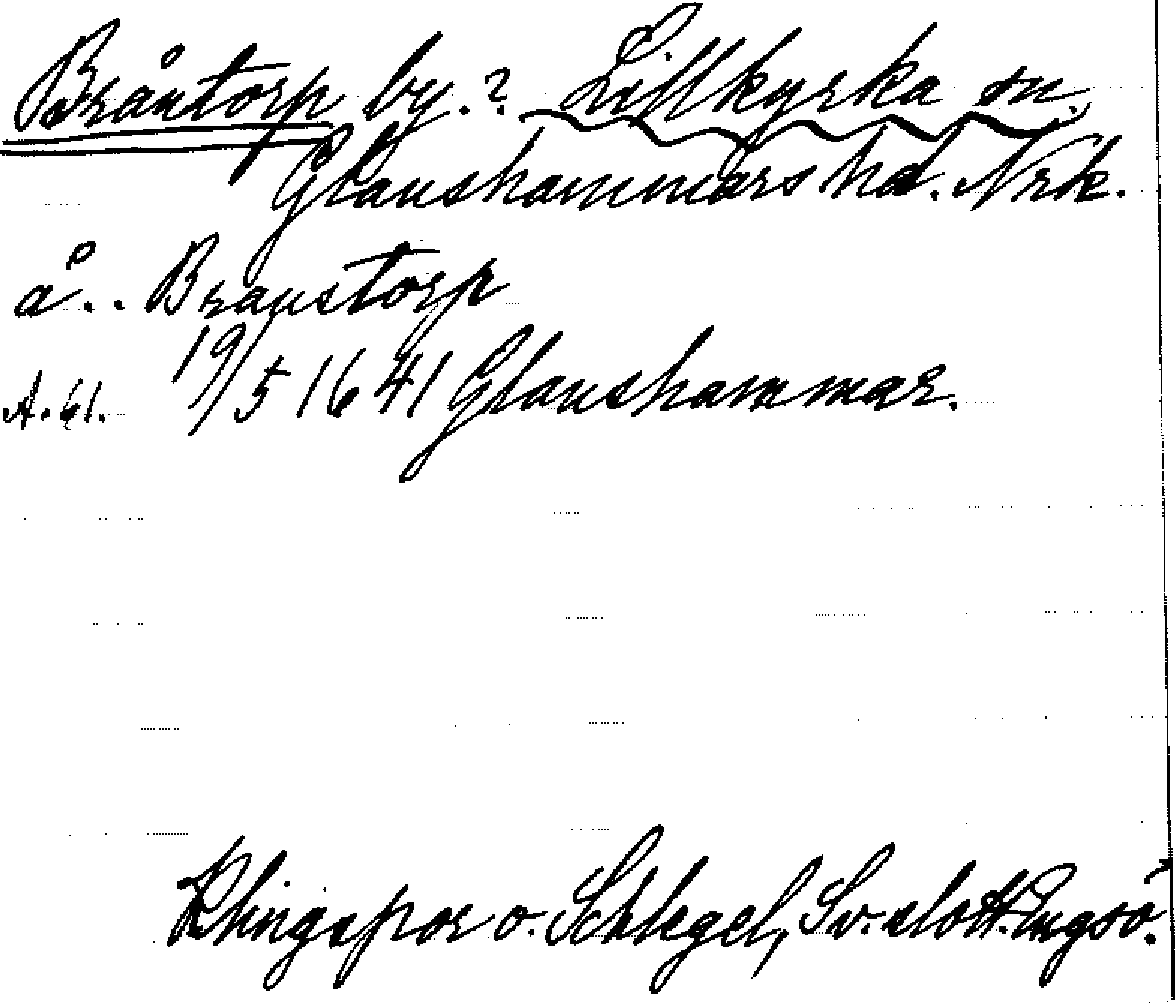 Bråntorp by.? Lillkyrka sn.,
Glanshammars hd. Nrk.
å.. Branstorp
A.61. 19/5 1641 Glanshammar.
Klingspor o. Schlegel, Sv. slott. Engsö.